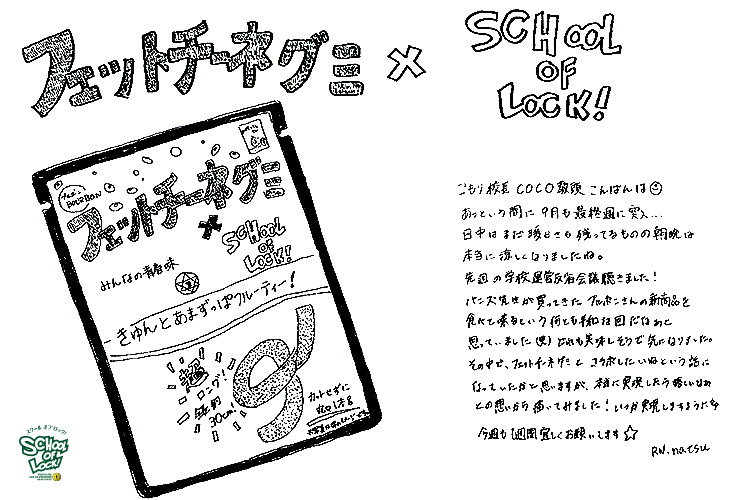 フェットチーネグミ×
SCHOOL
OF
LOCK!
ブルボン
BOURBON
フェットチーネグミ
×
SCHOOL
OF
LOCK!
みんなの青春味
きゅんとあまずっぱフルーティー!
超
ロング!
30cm!
カットせずに
こもり校長 COCO教頭 こんばんは
あっという間に 9月も最終週に突入...
日中はまだ暖かさも残ってるものの朝晩は
本当に涼しくなりましたね。
先週の学校運営反省会議聴きました!
パン大先生が買ってきた ブルボンさんの新商品を
食べて喋るという何とも平和な回だなあと
思っていました(笑) どれも美味しそうで気になりました。
その中で、フェットチーネグミと コラボしたいねという話に
なっていたかと思いますが、本当に実現したら嬉しいなあ
との思いから描いてみました! いつか実現しますように
今週も1週間宜しくお願いします☆
RN.natsu
スクール オブ ロック!
SCHOOL
OF
LOCK!